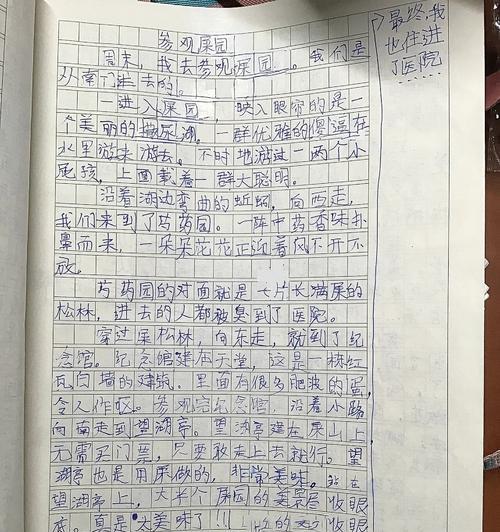 参观屎园
周末，我去参观屎园。我们是
从南门进去的。
一进入屎园，映入眼帘的是一
个美丽的撒尿湖。一群优雅的傻逼在
水里游来游去。不时地游过一两个小
屁孩，上面载着一群大聪明。
沿着湖边弯曲的蚯蚓，向西走，
我们来到了芍药园。一阵中药香味扑
鼻而来，一朵朵花花正迎着风不开不
放。
芍药园的对面就是一片长满屎的
松林，进去的人都被臭到了医院。
穿过屎松林，向东走，就到了纪
念馆。纪念馆建在天堂，这是一栋红
瓦白墙的建筑。里面有很多肥波的蛋，
令人作呕。参观完纪念馆，沿着小路
向南走到望湖亭。望湖亭建在屎山上，
无需买门票，只要敢走上去就行。望
湖亭也是用屎做的，非常美味。站在
望湖亭上，大半个屎园的美景尽收眼
底。真是太美味了!!!
最终，我
也住进
了医院